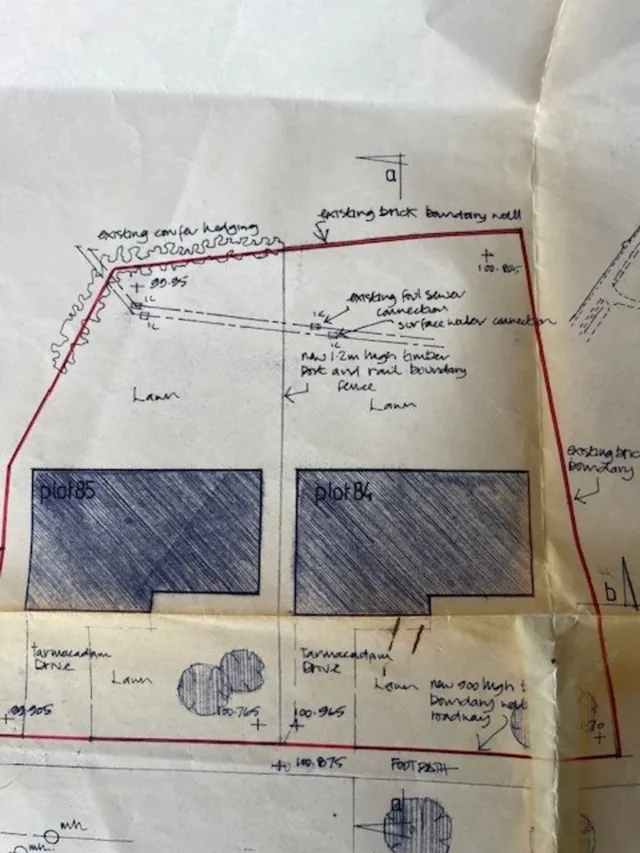 a
existing brick boundary wall
existing conifer hedging
99.95
IC
IC
100.
existing foul sewer
connection
surface water connection
IC
IC
new 1.2m high timber
post and rail boundary
fence
Lawn
Lawn
existing bric
boundary
plot 85
plot 84
b
tarmacadam
DRIVE
Lawn
Tarmacadam
DRIVE
Lawn
new 900 high
boundary wall
roadway
99.905
100.765
100.965
100.875
FOOTPATH
a
mh
mh